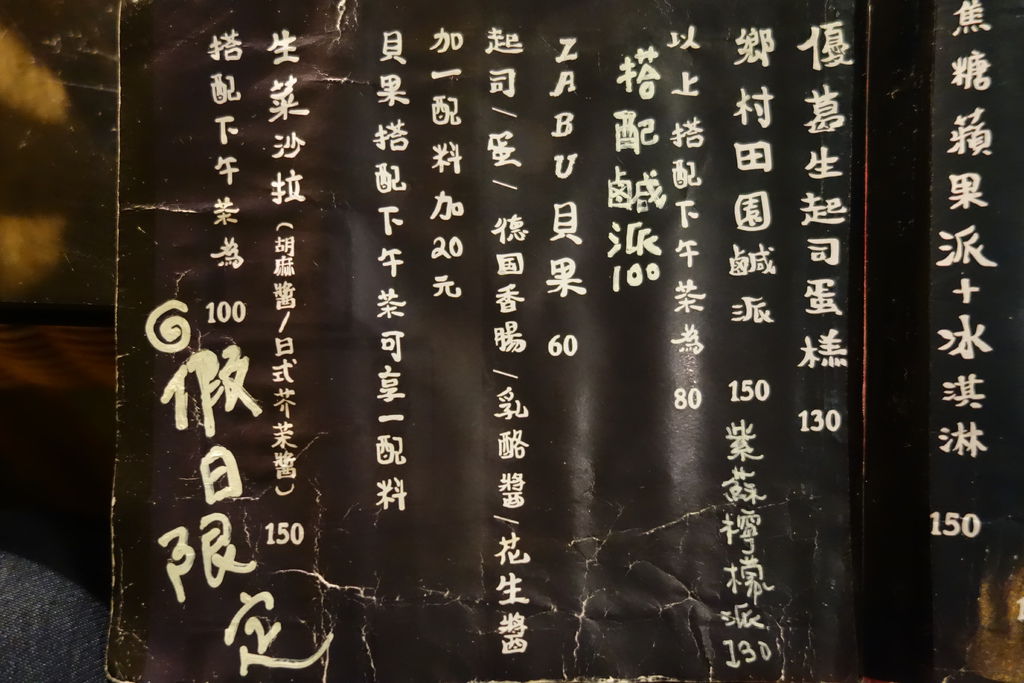 焦糖蘋果派+冰淇淋 150
優葛生起司蛋糕 130
鄉村田園鹹派 150
紫蘇檸檬派130
以上搭配下午茶為 80
搭配鹹派100
ZABU貝果 60
起司/蛋/德国香腸/乳酪醬/花生醬
加一配料加20元
貝果搭配下午茶可享一配料
生菜沙拉(胡麻醬/日式芥茉醬) 150
搭配下午茶為 100
假日限定